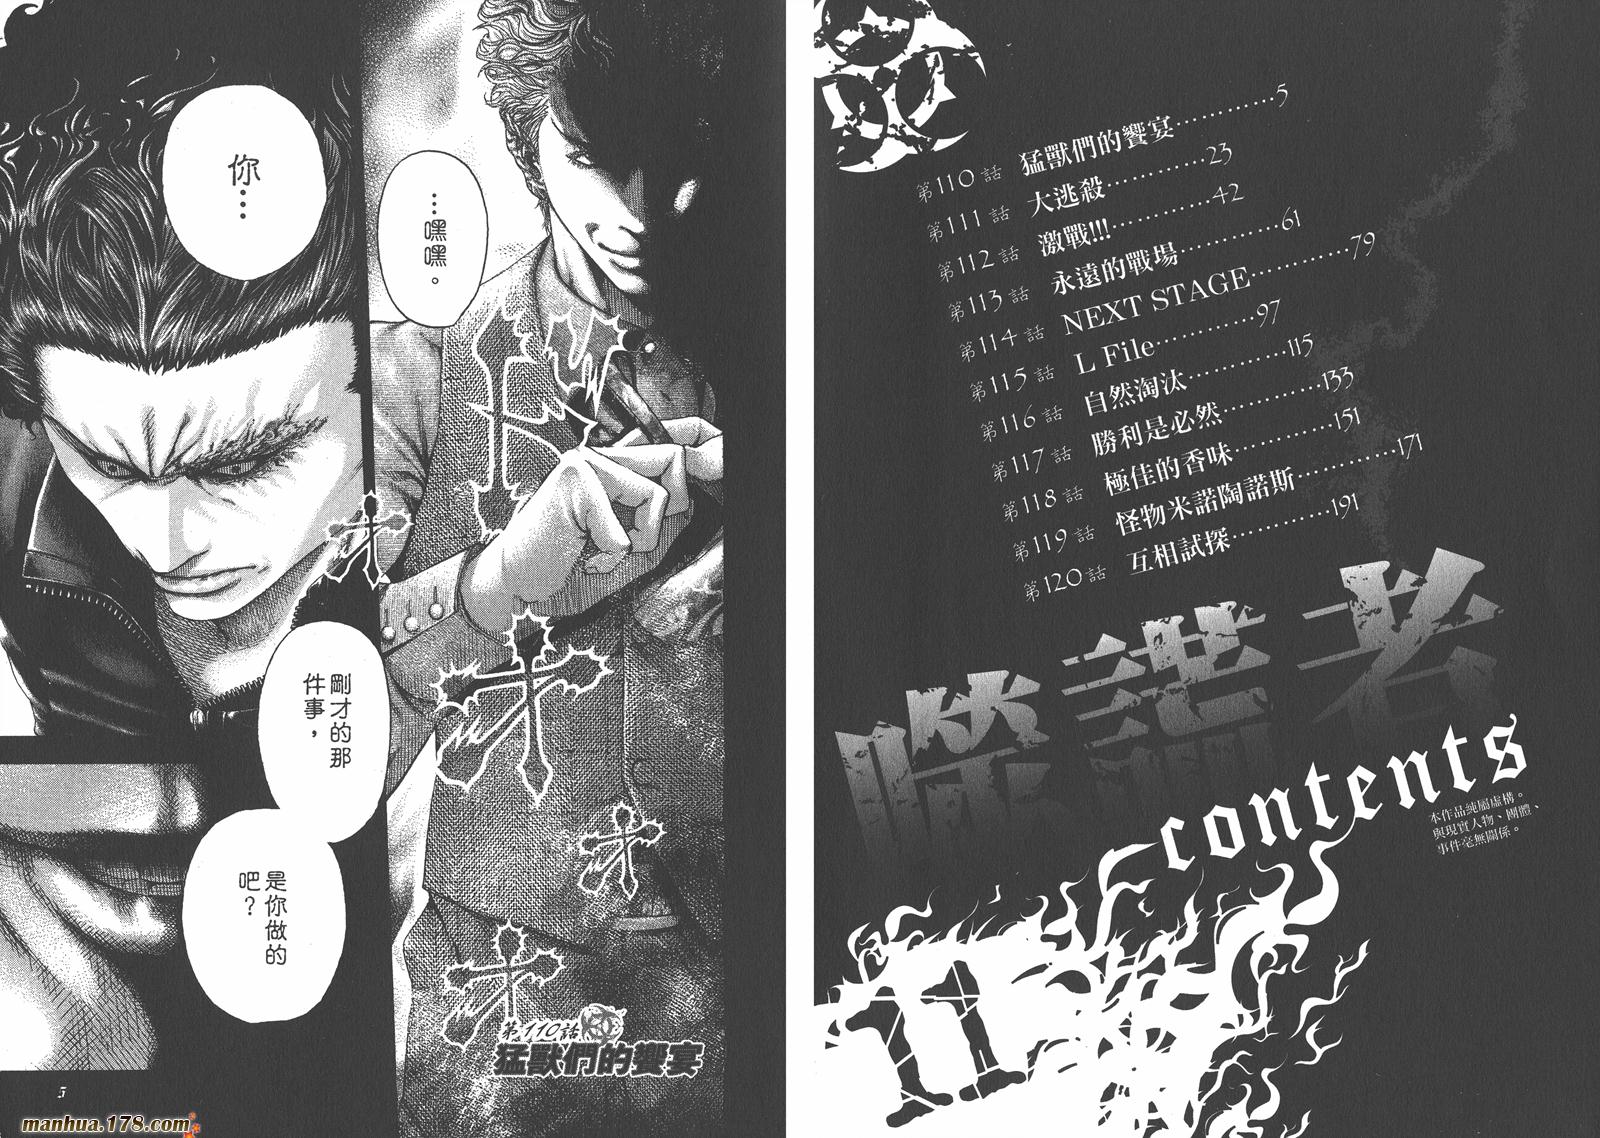 第110話 猛獸們的饗宴…………5
第111話 大逃殺…………23
第112話 激戰!!!…………42
第113話 永遠的戰場…………61
第114話 NEXT STAGE…………79
第115話 L File…………97
第116話 自然淘汰…………115
第117話 勝利是必然…………133
第118話 極佳的香味…………151
第119話 怪物米諾陶諾斯…………171
第120話 互相試探…………191
噬謊者
contents
本作品純屬虛構。
與現實人物、團體、
事件毫無關係。
11
…嘿嘿。
你…
剛才的那
件事，
是你做的
吧？
第110話
猛獸們的饗宴
5
manhua.178.com